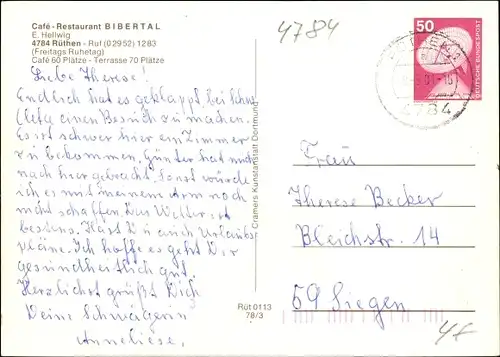 Café-Restaurant BIBERTAL
E. Hellwig
4784 Rüthen - Ruf (0 29 52) 12 83
(Freitags Ruhetag)
Café 60 Plätze - Terrasse 70 Plätze
4784
50
DEUTSCHE BUNDESPOST
4784
Liebe Therese!
Endlich hat es geklappt bei
einen Besuch zu machen.
Es ist schwer hier ein Zimmer
zu bekommen. Günter hat mich
nach hier gebracht. Sonst würde
ich es mit meinem Arm noch
nicht schaffen. Das Wetter ist
bestens. Hast Du auch Urlaubs
pläne. Ich hoffe es geht Dir
gesundheitlich gut.
Herzlichst grüßt Dich
Deine Schwägerin
Anneliese.
Cramers Kunstanstalt Dortmund
Rüt 0113
78/3
Frau
Therese Becker
Bleichstr. 14
59 Siegen